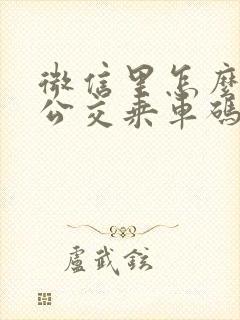 微信里怎麼
公交乘車碼
盧武鉉